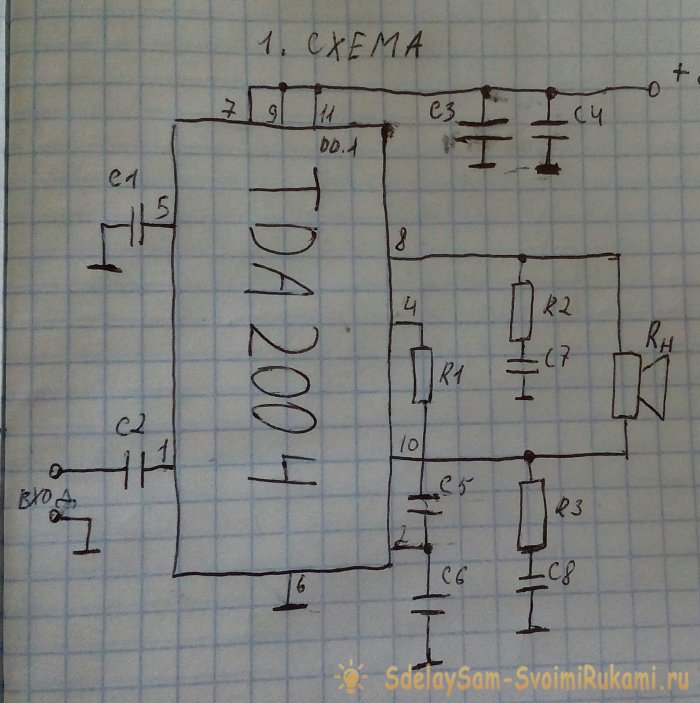 1. СХЕМА
+
7 9 11
C3 C4
DD.1
C1
5
TDA2004
8
4
R2
Rн
C7
R1
C2
1
10
ВХОД
C5
R3
2
C6
C8
6
SdelaySam-SvoimiRukami.ru